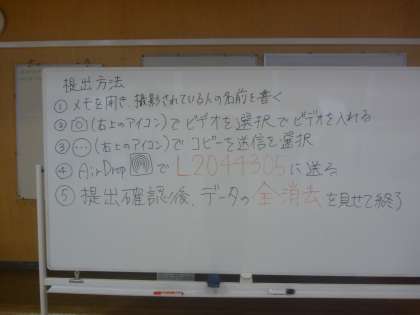 提出方法
①メモを開き、撮影されている人の名前を書く
②(右上のアイコン)でビデオを選択でビデオを入れる
③…(右上のアイコン)でコピーを送信を選択
④AirDropでL2044305に送る
⑤提出確認後、データの全消去を見せて終了